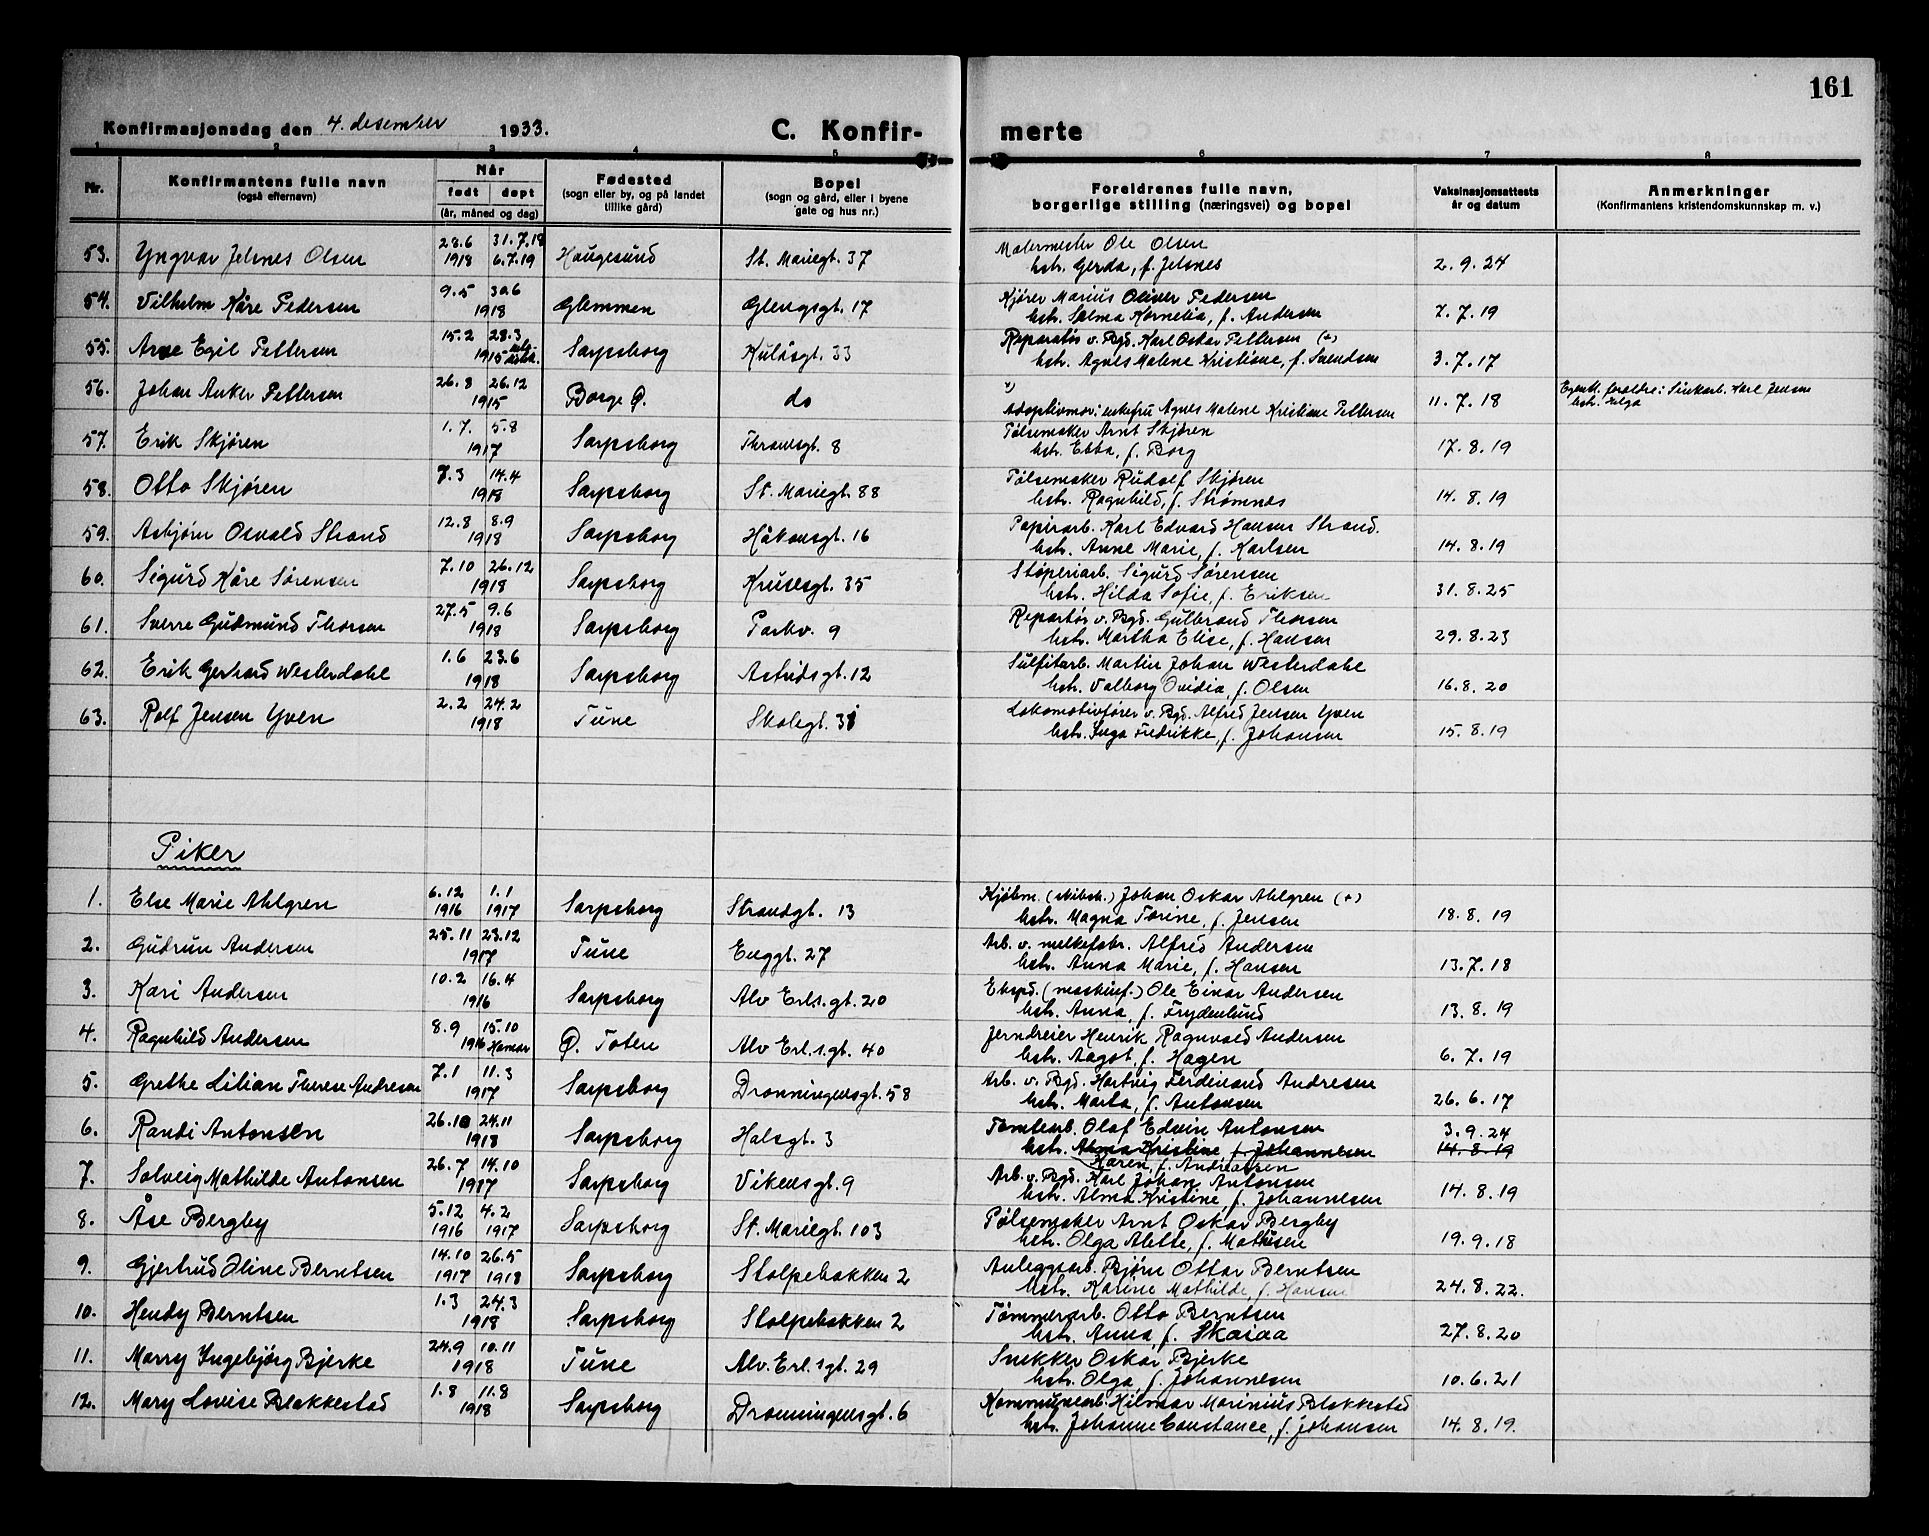 161
Konfirmasjonsdag den 4. desember 1933. C. Konfir- merte
1 2 3 4 5 6 7 8
Nr. Konfirmantens fulle navn (også efternavn) Når født døpt (år, måned og dag) Fødested (sogn eller by, og på landet tillike gård) Bopel (sogn og gård, eller i byene gate og hus nr.) Foreldrenes fulle navn, borgerlige stilling (næringsvei) og bopel Vaksinasjonsattests år og datum Anmerkninger (Konfirmantens kristendomskunnskap m. v.)
53. Yngvar Jelsnes Olsen 28.6 1918 31.7.18 6.7.19 Haugesund St. Mariegt. 37 Malermester Ole Olsen
hstr. Gerda, f. Jelsnes 2.9.24
54. Vilhelm Kåre Pedersen 9.5 30.6 1918 Glemmen Glengsgt. 17 Kjører Marius Oliver Pedersen
hstr. Selma Kornelia, f. Andersen 2.7.19
55. Arne Egil Pettersen 15.2 28.3 1915 Sarpsborg Kulåsgt. 33 Reparatør v. Bgd. Karl Oskar Pettersen (+)
hstr. Agnes Malene Kristiane, f. Svendsen 3.7.17
56. Johan Anker Pettersen 26.8 26.12 1915 Borge Ø. do
Adoptivmor: enkefru Agnes Malene Kristiane Pettersen 11.7.18 Egentl. foreldre: Sinkarb. Karl Jensen
hstr. Helga
57. Erik Skjøren 1.7. 5.8 1917 Sarpsborg Thranesgt. 8 Pølsemaker Arnt Skjøren
hstr. Ebba, f. Borg 17.8.19
58. Otto Skjøren 7.3 14.4 1918 Sarpsborg St. Mariegt. 88 Pølsemaker Rudolf Skjøren
hstr. Ragnhild, f. Strømnes 14.8.19
59. Asbjørn Osvald Strand 12.8 8.9 1918 Sarpsborg Håkonsgt. 16 Papirarb. Karl Edvard Hansen Strand.
hstr. Anne Marie, f. Karlsen 14.8.19
60. Sigurd Kåre Sørensen 7.10 26.12 1918 Sarpsborg Krusesgt. 35 Støperiarb. Sigurd Sørensen
hstr. Hilda Sofie, f. Eriksen 31.8.25
61. Sverre Gudmund Thorsen 27.5 9.6 1918 Sarpsborg Parkv. 9 Repartør v. Bgd. Gulbrand Thorsen
hstr. Martha Elise, f. Hansen 29.8.23
62. Erik Gerhard Westerdahl 1.6 23.6 1918 Sarpsborg Astridsgt. 12 Sulfitarb. Martin Johan Westerdahl
hstr. Valborg Ovidia, f. Olsen 16.8.20
63. Rolf Jensen Yven 2.2 24.2 1918 Tune Skolegt. 31 Lokomotivfører v. Bgd. Alfred Jensen Yven
hstr. Inga Fredrikke, f. Johansen 15.8.19
Piker
1. Else Marie Ahlgren 6.12 1916 1.1 1917 Sarpsborg Strandgt. 13 Kjøbm. Johan Oskar Ahlgren (+)
hstr. Magna Torine, f. Jensen 18.8.19
2. Gudrun Andersen 25.11 23.12 1917 Tune Enggt. 27 Arb. v. melkefabr. Alfred Andersen
hstr. Anna Marie, f. Hansen 13.7.18
3. Kari Andersen 10.2 16.4 1916 Sarpsborg Alv Erl.s.gt. 20 Ekspd. (maskinf.) Ole Einar Andersen
hstr. Anna, f. Frydenlund 13.8.19
4. Ragnhild Andersen 8.9 15.10 1916 Hamar Ø. Toten Alv Erl.s.gt. 40 Jerndreier Henrik Ragnvald Andersen
hstr. Aagot, f. Hagen 6.7.19
5. Grethe Lilian Therese Andresen 7.1 11.3 1917 Sarpsborg Dronningensgt. 58 Arb. v. Bgd. Hartvig Ferdinand Andresen
hstr. Marta, f. Antonsen 26.6.17
6. Randi Antonsen 26.10 24.11 1918 Sarpsborg Halsgt. 3 Tomtearb. Olaf Edvin Antonsen 3.9.24
hstr. Alma Kristine f. Johannesen 14.8.19
Karen, f. Andreassen
7. Solveig Mathilde Antonsen 26.7 14.10 1917 Sarpsborg Vikensgt. 9 Arb. v. Bgd. Karl Johan Antonsen
hstr. Alma Kristine f. Johannesen 14.8.19
8. Åse Bergby 5.12 1916 4.2 1917 Sarpsborg St. Mariegt. 103 Pølsemaker Arnt Oskar Bergby
hstr. Olga Alette, f. Mathisen 19.9.18
9. Gjertrud Oline Berntsen 14.10 1917 26.5 1918 Sarpsborg Stolpebakken 2 Anleggsarb. Bjørn Ottar Berntsen
hstr. Karine Mathilde, f. Hansen 24.8.22.
10. Hendy Berntsen 1.3 24.3 1918 Sarpsborg Stolpebakken 2 Tømmerarb. Otto Berntsen
hstr. Anna, f. Skaiaa 27.8.20
11. Marry Ingebjørg Bjerke 24.9 10.11 1918 Tune Alv. Erl.sgt. 29 Snekker Oskar Bjerke
hstr. Olga f. Johannesen 10.6.21
12. Mary Lovise Blakkestad 1.8 11.8 1918 Sarpsborg Dronningensgt. 6 Kommunearb. Hilmar Marinius Blakkestad
hstr. Johanne Constance, f. Johansen 14.8.19.